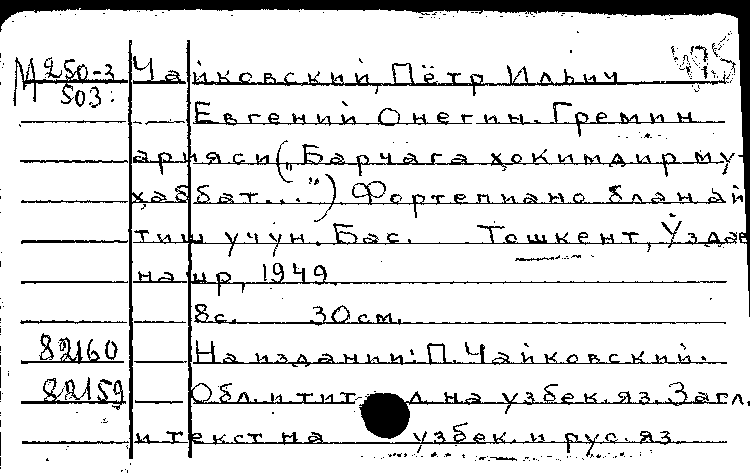 М 250-3 Чайковский, Пётр Ильич 495
503:
Евгений Онегин. Гремин
арияси („Барчага ҳокимдир му-
ҳаббат...") Фортепиано блан ай
тиш учун. Бас. Тошкент, Ўздав
нашр, 1949
8с. 30 см.
82160 На издании: П. Чайковский.
82159 Обл. и тит л. на узбек. яз. Загл.
и текст на узбек. и рус. яз